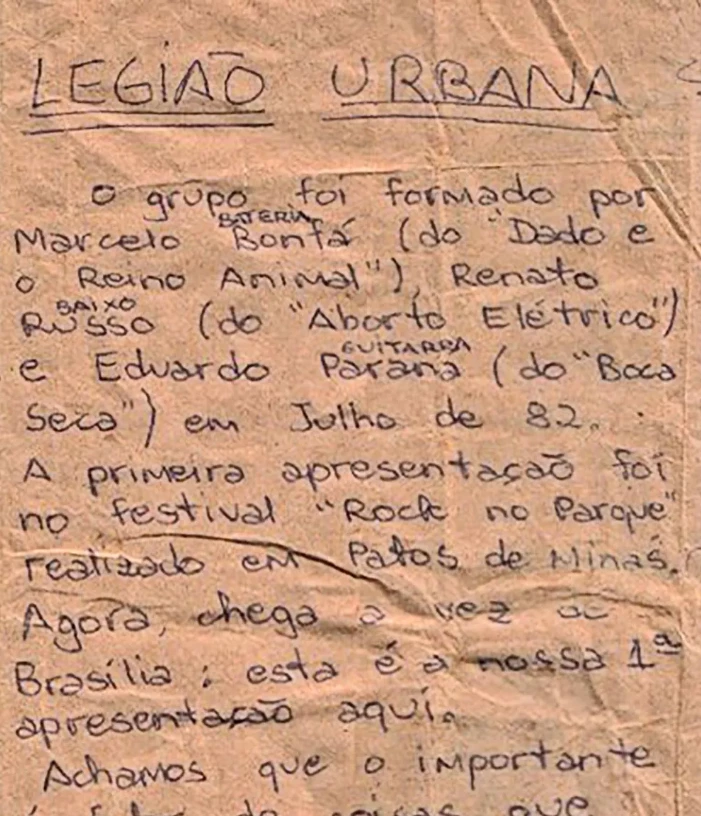 LEGIAÕ URBANA
O grupo foi formado por
BATERIA
Marcelo Bonfá (do "Dado e
o Reino Animal"), Renato
BAIXO
RUSSO (do "Aborto Elétrico")
GUITARRA
e Eduardo Paraná (do "Boca
Seca") em Julho de 82.
A primeira apresentaçaõ foi
no festival "Rock no Parque"
realizado em Patos de Minas.
Agora, chega a vez de
Brasília: esta é a nossa 1ª
apresentaçaõ aquí.
Achamos que o importante
é falar de coisas que